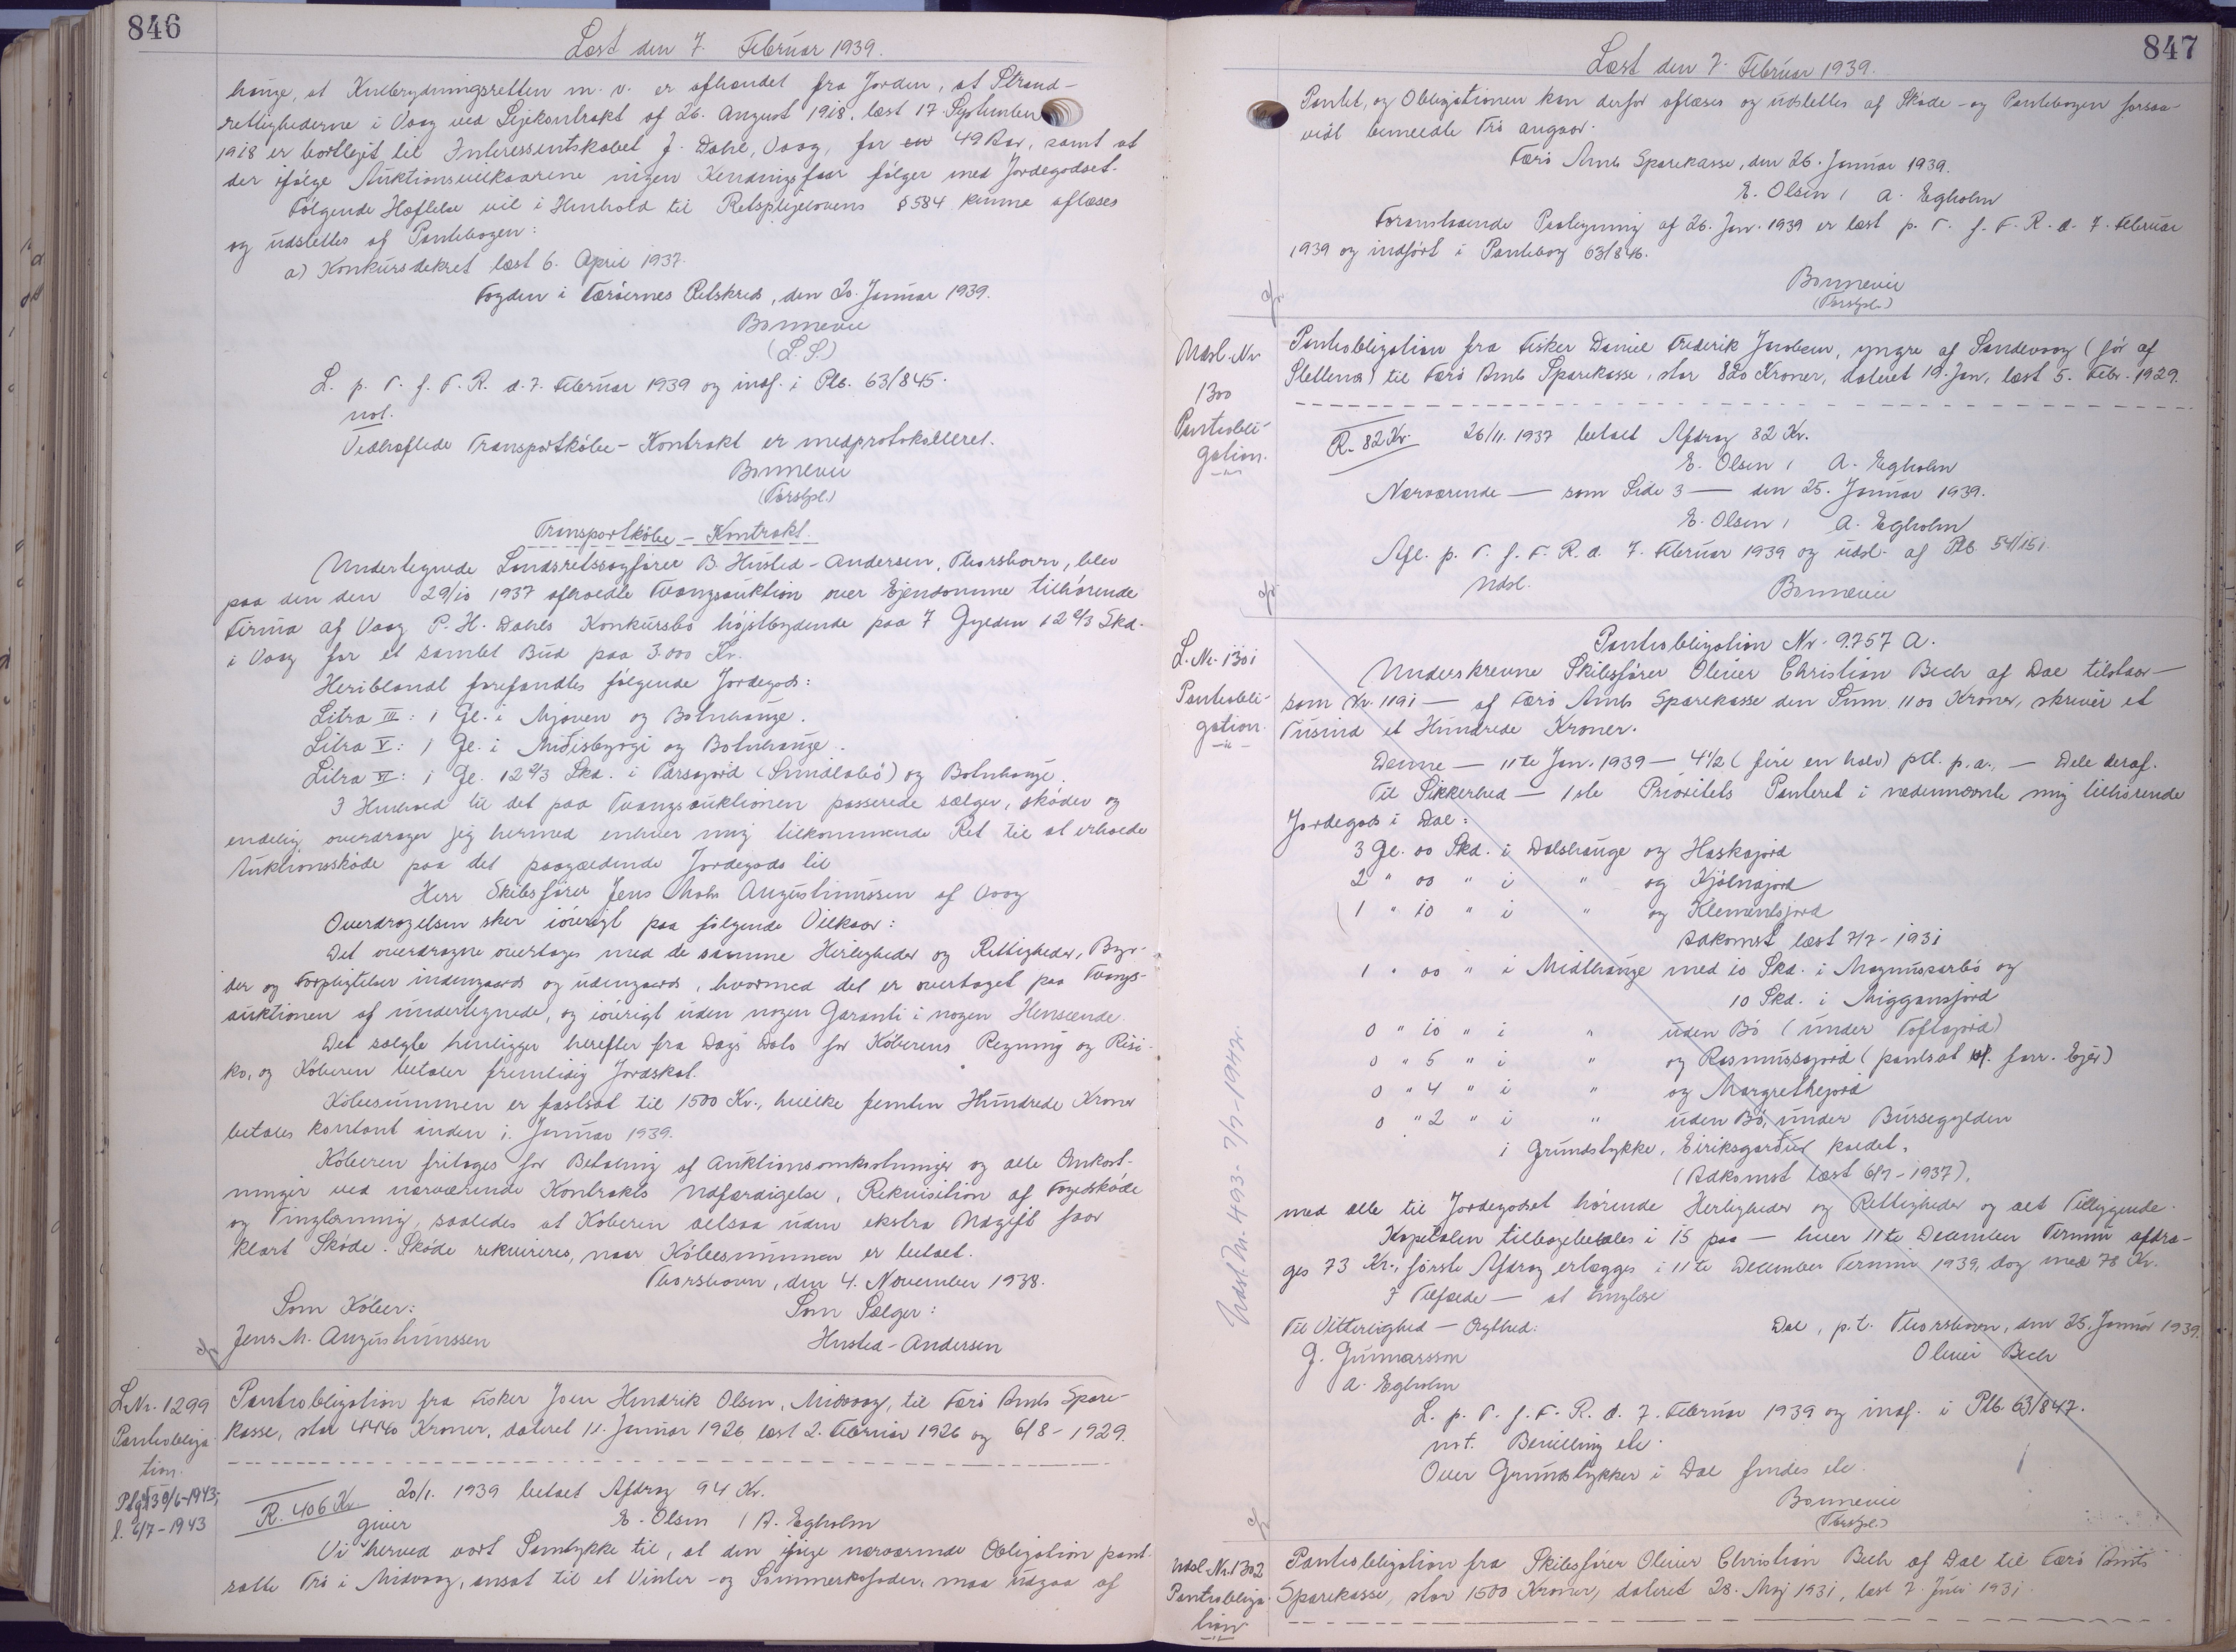 846
Læst den 7. Februar 1939.
hauge, at Kulbrydningsretten m. v. er afhændet fra Jorden, at Strand-
rettighederne i Vaag ved Lejekontrakt af 26. August 1918, læst 17 September
1918 er bortlejet til Interessentskabet J. Dahl, Vaag, for en 49 Aar, samt at
der ifølge Auktionsvilkaarene ingen Kendingsfaar følger med Jordegodset.
Følgende Hæftelse vil i Henhold til Retsplejelovens § 584 kunne aflæses
og udslettes af Pantebogen:
a) Konkursdekret læst 6. April 1937.
Fogden i Færøernes Retskreds, den 20. Januar 1939.
Bonnevie
(L. S.)
L. p. T. f. F. R. d. 7. Februar 1939 og indf. i Ptb. 63/845.
not.
Vedhæftede Transportkøbe-Kontrakt er medprotokolleret.
Bonnevie
(Torshpl.)
Transportkøbe-Kontrakt.
Undertegnede Landsretssagfører B. Husted-Andersen, Thorshavn, blev
paa den den 29/10 1937 afholdte Tvangsauktion over Ejendomme tilhørende
Firma af Vaag P. H. Dahls Konkursbo højstbydende paa 7 Gylden 12 2/3 Skd.
i Vaag for et samlet Bud paa 3.000 Kr.
Heriblandt forefandtes følgende Jordegods:
Litra III: 1 Gl. i Mjaven og Botnhauge.
Litra V: 1 Gl. i Midisbyrgi og Botnhauge.
Litra VI: 1 Gl. 12 2/3 Skd. i Parsajørd (Smidlabø) og Botnhauge.
I Henhold til det paa Tvangsauktionen passerede sælger, skøder og
endelig overdrager jeg hermed enhver mig tilkommende Ret til at erholde
Auktionsskøde paa det paagældende Jordegods til
Herr Skibsfører Jens Mohr Augustinussen af Vaag
Overdragelsen sker iøvrigt paa følgende Vilkaar:
Det overdragne overtages med de samme Herligheder og Rettigheder, Byr-
der og Forpligtelser indengaards og udengaards, hvormed det er overtaget paa Tvangs-
auktionen af undertegnede, og iøvrigt uden nogen Garanti i nogen Henseende.
Det solgte henligger herefter fra Dags Dato for Køberens Regning og Risi-
ko, og Køberen betaler fremtidig Jordskat.
Købesummen er fastsat til 1500 Kr., hvilke femten Hundrede Kroner
betales kontant inden 1. Januar 1939.
Køberen fritages for Betaling af Auktionsomkostninger og alle Omkost-
ninger ved nærværende Kontrakts Udfærdigelse, Rekvisition af Fogedskøde
og Tinglæsning, saaledes at Køberen altsaa uden ekstra Udgift faar
klart Skøde. Skøde rekvireres, naar Købesummen er betalt.
Thorshavn, den 4. November 1938.
Som Køber: Som Sælger:
Jens M. Augustinussen Husted-Andersen
L. Nr. 1299
Pantobliga-
tion.
l. 6/7-1943
Pantobligation fra Fisker Joen Hendrik Olsen, Midvaag, til Færø Amts Spare-
kasse, stor 4440 Kroner, dateret 11. Januar 1926, læst 2. Februar 1926 og 6/8-1929.
R. 406 Kr. 20/1. 1939 betalt Afdrag 94 Kr.
E. Olsen / A. Egholm
giver
Vi herved vort Samtykke til, at den ifølge nærværende Obligation pant-
satte Trø i Midvaag, ansat til et Vinter- og Sommerkofoder, maa udgaa af
847
Læst den 7. Februar 1939.
Pantet, og Obligationen kan derfor aflæses og udslettes af Skøde- og Pantebogen forsaa-
vidt bemeldte Trø angaar.
Færø Amts Sparekasse, den 26. Januar 1939.
E. Olsen / A. Egholm
Foranstaaende Paategning af 26. Jan. 1939 er læst p. T. f. F. R. d. 7. Februar
1939 og indført i Pantebog 63/846.
Bonnevie
(Torshpl.)
Udsl. Nr.
1300
Pantobli-
gation.
Pantobligation fra Fisker Daniel Frederik Jacobsen, yngre af Sandevaag (før af
Slettenæs) til Færø Amts Sparekasse, stor 820 Kroner, dateret 19. Jan, læst 5. Febr. 1929.
R. 82 Kr. 26/11. 1937 betalt Afdrag 82 Kr.
E. Olsen / A. Egholm
Nærværende — som Side 3 — den 25. Januar 1939.
E. Olsen / A. Egholm
Afl. p. T. f. F. R. d. 7. Februar 1939 og udsl. af Ptb 54/151
Udsl. Bonnevie
L. Nr. 1301
Pantobli-
gation.
Pantobligation Nr. 9757 A.
Underskrevne Skibsfører Oliver Christian Bech af Dal tilstaar —
som Nr. 1191 — af Færø Amts Sparekasse den Sum 1100 Kroner, skriver et
Tusind et Hundrede Kroner.
Denne — 11te Jan. 1939 — 4 1/2 (fire en halv) pCt. p. a., — Dele deraf.
Til Sikkerhed — 1ste Prioritets Panteret i nedennævnte mig tilhørende
Jordegods i Dal:
3 Gl. 00 Skd. i Dalshauge og Haskajørd
2 " 00 " i " og Kjølnajørd
(1 " 10 " i " og Klementsjørd
Adkomst læst 7/7-1931
1 " 00 " i Midthauge med 10 Skd. i Magnussarbø og
10 Skd. i Miggansjørd
0 " 10 " i " uden Bø (under Toftajørd)
0 " 5 " i " og Rasmussajørd (pantsat af forr. Ejer)
0 " 4 " i " og Margrethejørd
0 " 2 " i " uden Bø, under Bursegylden
1 Grundstykke, Eiriksgardur kaldet.
(Adkomst læst 6/7-1937).
med alle til Jordegodset hørende Herligheder og Rettigheder og alt Tilliggende.
Kapitalen tilbagebetales i 15 paa — hver 11te December Termin afdra-
ges 73 Kr., første Afdrag erlægges i 11te December Termin 1939, dog med 78 Kr.
I Tilfælde — at tinglæse
Til Vitterlighed — Myndighed: Dal, p. t. Thorshavn, den 25. Januar 1939.
G. Gunnarsson Oliver Bech
A. Egholm
L. p. T. f. F. R. d. 7. Februar 1939 og indf. i Ptb 63/847.
not. Bevilling etc.
Over Grundstykker i Dal findes etc.
Bonnevie
(Torshpl.)
Udsl. Nr. 1302
Pantobliga-
tion
Pantobligation fra Skibsfører Oliver Christian Bech af Dal til Færø Amts
Sparekasse, stor 1500 Kroner, dateret 28. Maj 1931, læst 7. Juli 1931.